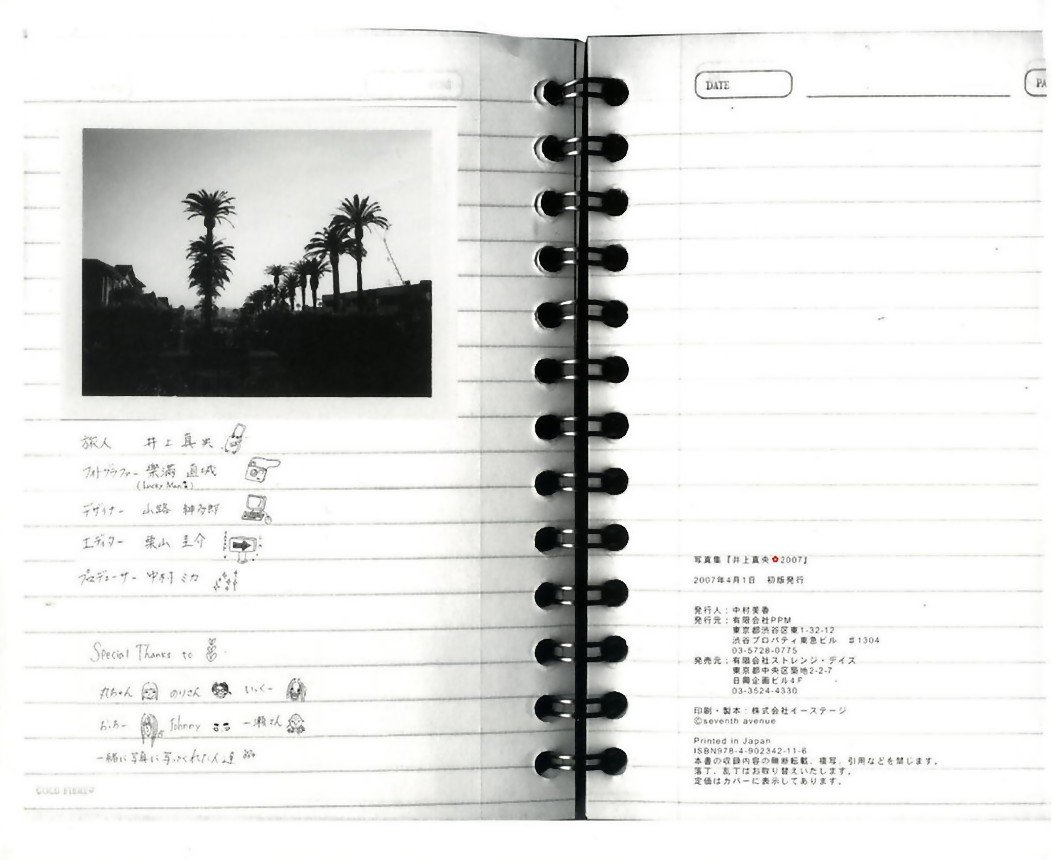 旅人 井上真央
フォトグラファー 樂満 直城
(Lucky Man)
デザイナー 山路
エディター 栗山 圭介
プロデューサー 中村ミカ
Special Thanks to
丸ちゃん のりさん いっくー
おっちー Johnny 一瀬さん
一緒に写真に写ってくれた人達
DATE
PA
写真集『井上真央2007』
2007年4月1日 初版発行
発行人：中村美香
発行元：有限会社PPM
東京都渋谷区東1-32-12
渋谷プロパティ東急ビル ＃1304
03-5728-0775
発売元：有限会社ストレンジ・デイズ
東京都中央区築地2-2-7
日興企画ビル4F
03-3524-4330
印刷・製本：株式会社イーステージ
©seventh avenue
Printed in Japan
ISBN978-4-902342-11-6
本書の収録内容の無断転載、複写、引用などを禁じます。
落丁、乱丁はお取り替えいたします。
定価はカバーに表示してあります。